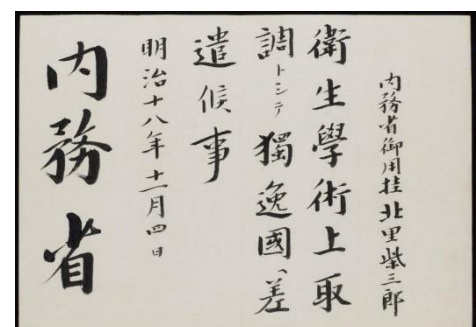 内務省御用掛北里柴三郎
衛生學術上取
調トシテ獨逸國ヘ差
遣候事
明治十八年十一月四日
内務省